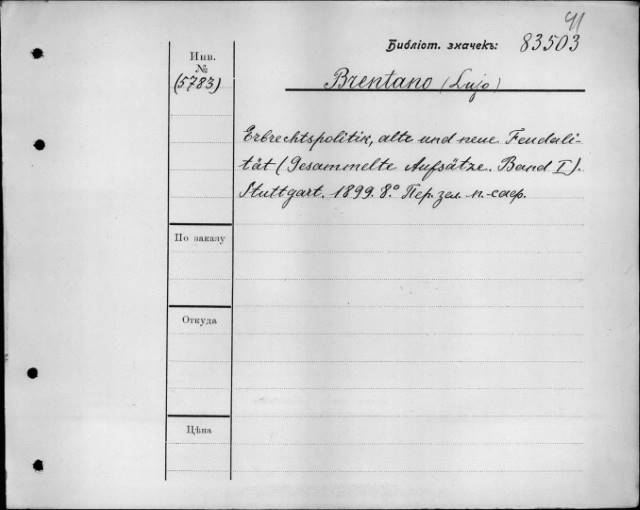 41
Библіот. значекъ: 83503
Инв.
№
(5783)
Brentano (Lujo)
Erbrechtspolitik, alte und neue Feudali-
tät (Gesammelte Aufsätze. Band I).
Stuttgart. 1899. 8.° Пер. зел. п.-сафр.
По заказу
Откуда
Цѣна